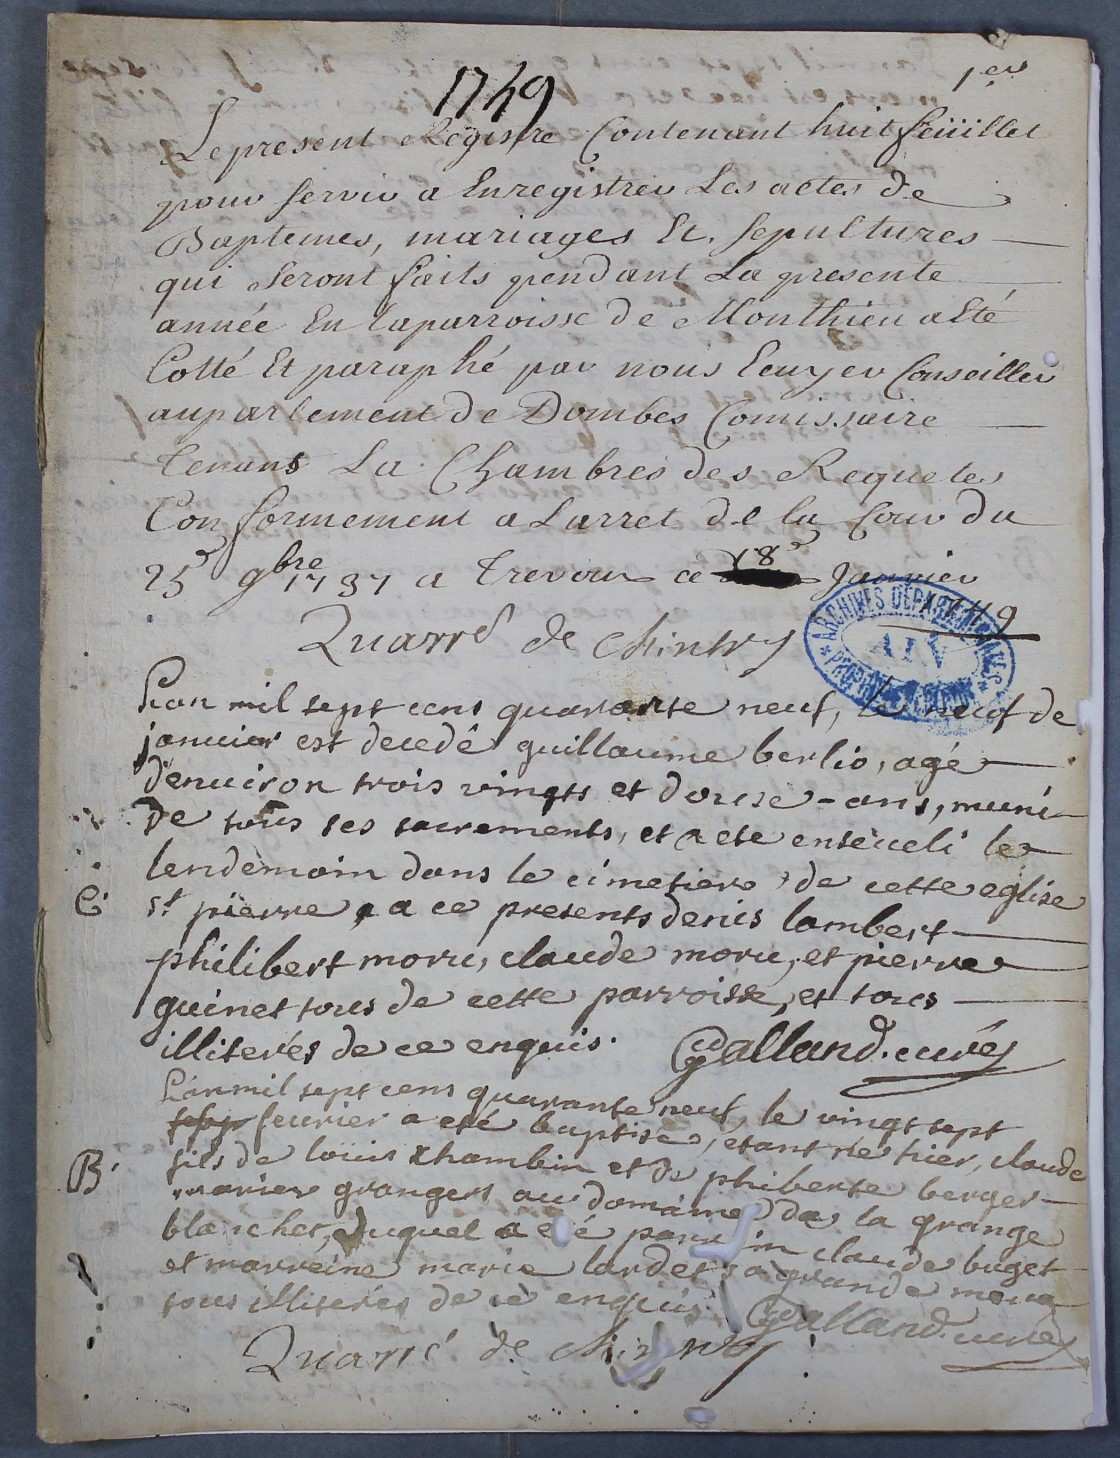 1er
1749
Le present Registre Contenant huit feüillet
pour servir a Enregistrer Les actes de
Baptemes, mariages Et. sepultures
qui seront faits pendant La presente
année En laparroisse de Monthieu a Eté
Cotté Et paraphé par nous Ecuyer Conseiller
auparlement de Dombes Comissaire
tenans La Chambres des Requetes
Conformement a Larret de la Cour du
25e 9bre 1737 a Trevoux ce 18e Janvier
1749
Quarré de Chintry
ARCHIVES DEPARTEMENTALES
AIN
PROPRIETE
Lan mil sept cens quarante neuf, le neuf de
januier est decedé guillaume berlio, agé
denuiron trois vingts et douse-ans, muni
de tous ses sacrements, et a eté enseueli le
lendemain dans le cimetiere de cette eglise
st pierre, a ce presents denis lambert
philibert moru, claude moru, et pierre
guinet tous de cette parroisse, et tous
illiterés de ce enquis. Galland. curé
Lan mil sept cens quarante neuf, le vingt sept
feurier a eté baptisé, etant né hier, claude
B
fils de loüis chambin et de philiberte berger
grangers au domaine de la grange
blanches, duquel a eté parrain claude buget
et marreine marie lardet a grande
tous illiterés de ce enquis. Galland. curé
Quarré de Chintry